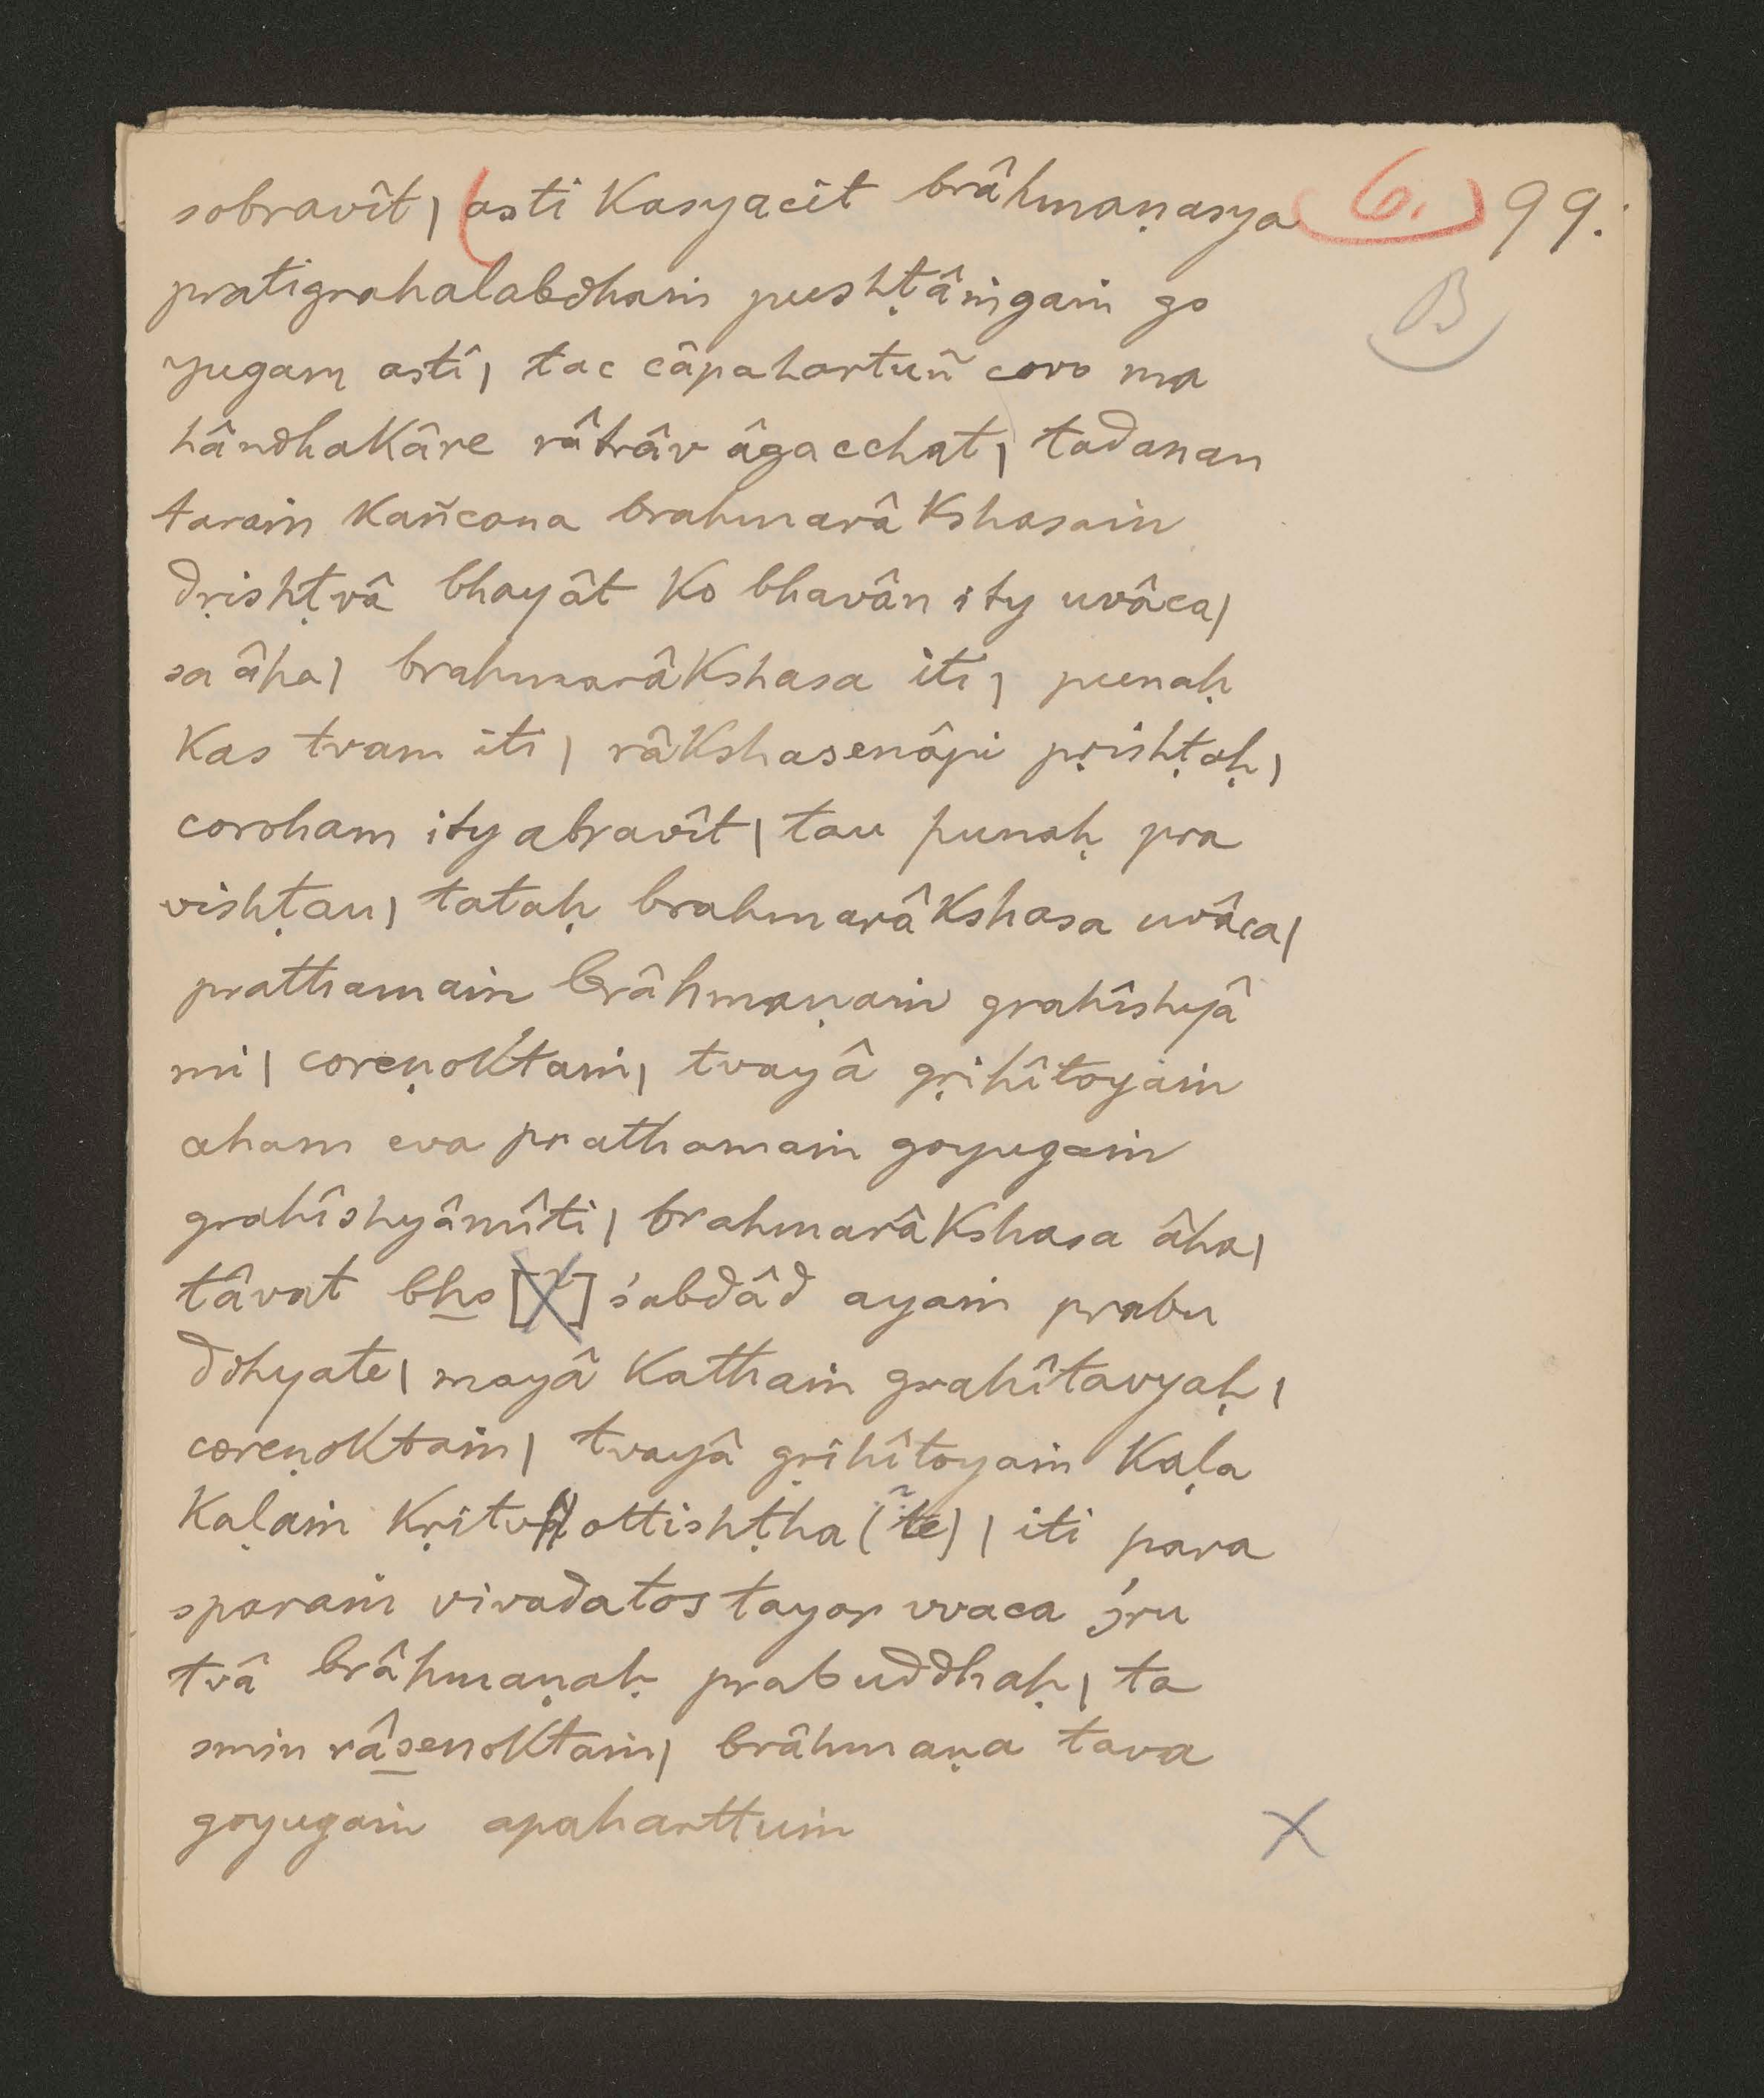 sobravît | (asti kasyacit brâhmaṇasya (6.) 99.
pratigrahalabdhaṁ pushṭâṁgaṁ go B
yugam asti | tac câpahartuñ coro ma
hândhakâre râtrâv âgacchat | tadanan
taraṁ kañcana brahmarâkshasaṁ
dṛishṭvâ bhayât ko bhavân ity uvâca |
sa âha | brahmarâkshasa iti | punaḥ
kas tvam iti | râkshasenâpi pṛishṭaḥ |
coroham ity abravît | tau punaḥ pra
vishṭau | tataḥ brahmarâkshasa uvâca |
prathamaṁ brâhmaṇaṁ grahîshyâ
mi | coreṇoktaṁ | tvayâ gṛihîtoyaṁ
aham eva prathamaṁ goyugaṁ
grahîshyâmîti | brahmarâkshasa âha |
tâvat bho [X] śabdâd ayaṁ prabu
ddhyate | mayâ kathaṁ grahîtavyaḥ |
coreṇoktaṁ | tvayâ gṛihîtoyaṁ kaḷa
kaḷaṁ kṛitv ottishṭha (te) | iti para
sparaṁ vivadatos tayor vvaca śru
tvâ brâhmaṇaḥ prabuddhaḥ | ta
smin râsenoktaṁ | brâhmaṇa tava
goyugaṁ apaharttuṁ X